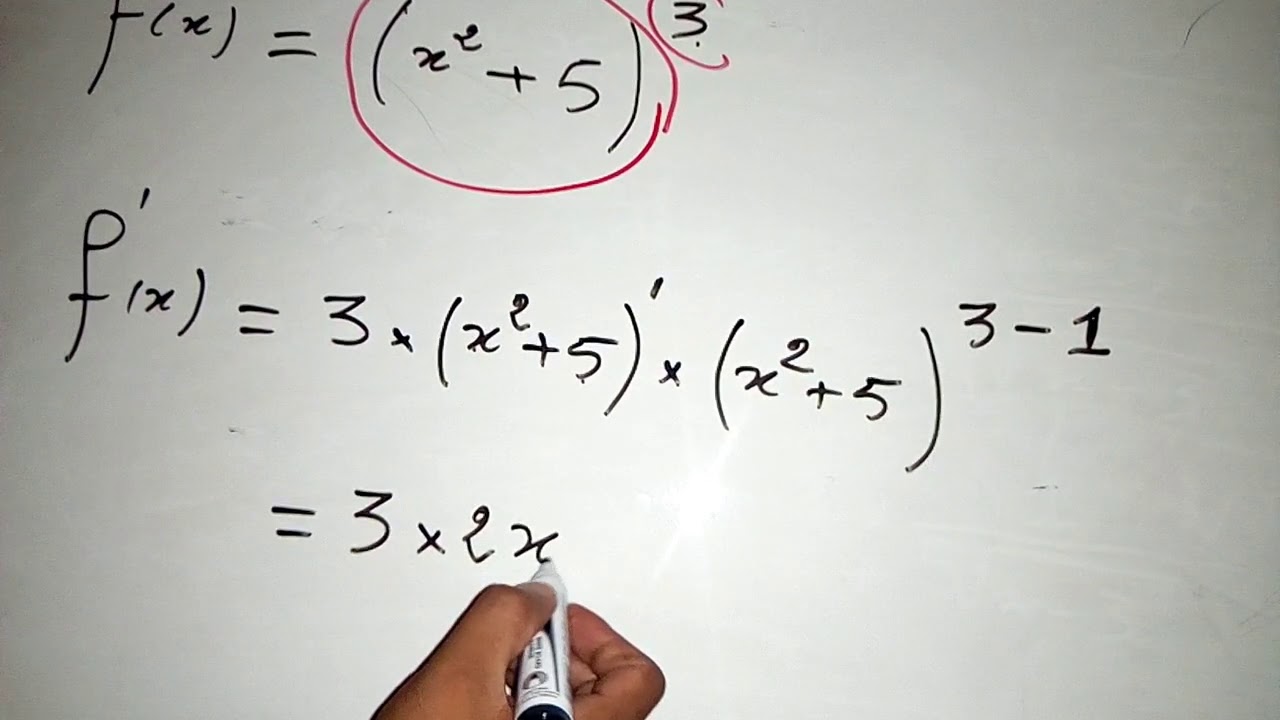 f(x) = (x² + 5)³
f'(x) = 3 × (x² + 5)' × (x² + 5)³⁻¹
= 3 × 2x